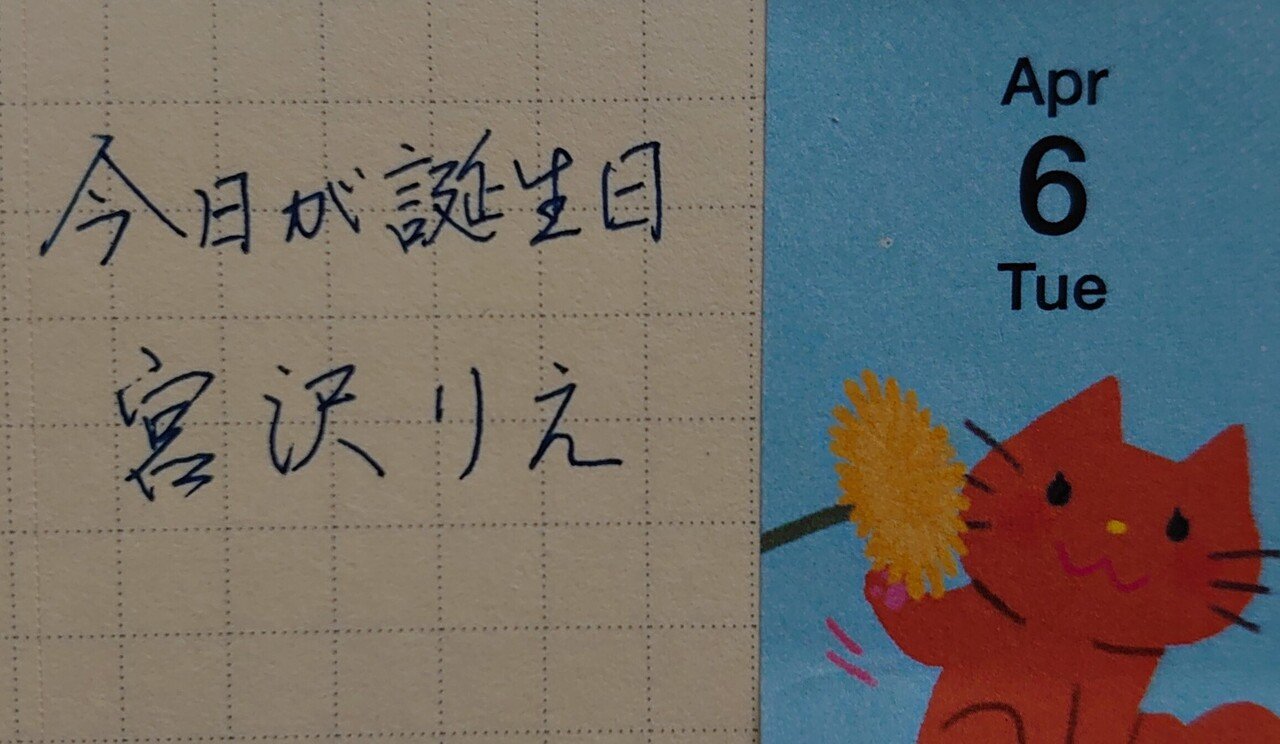 今日が誕生日
宮沢りえ
Apr
6
Tue